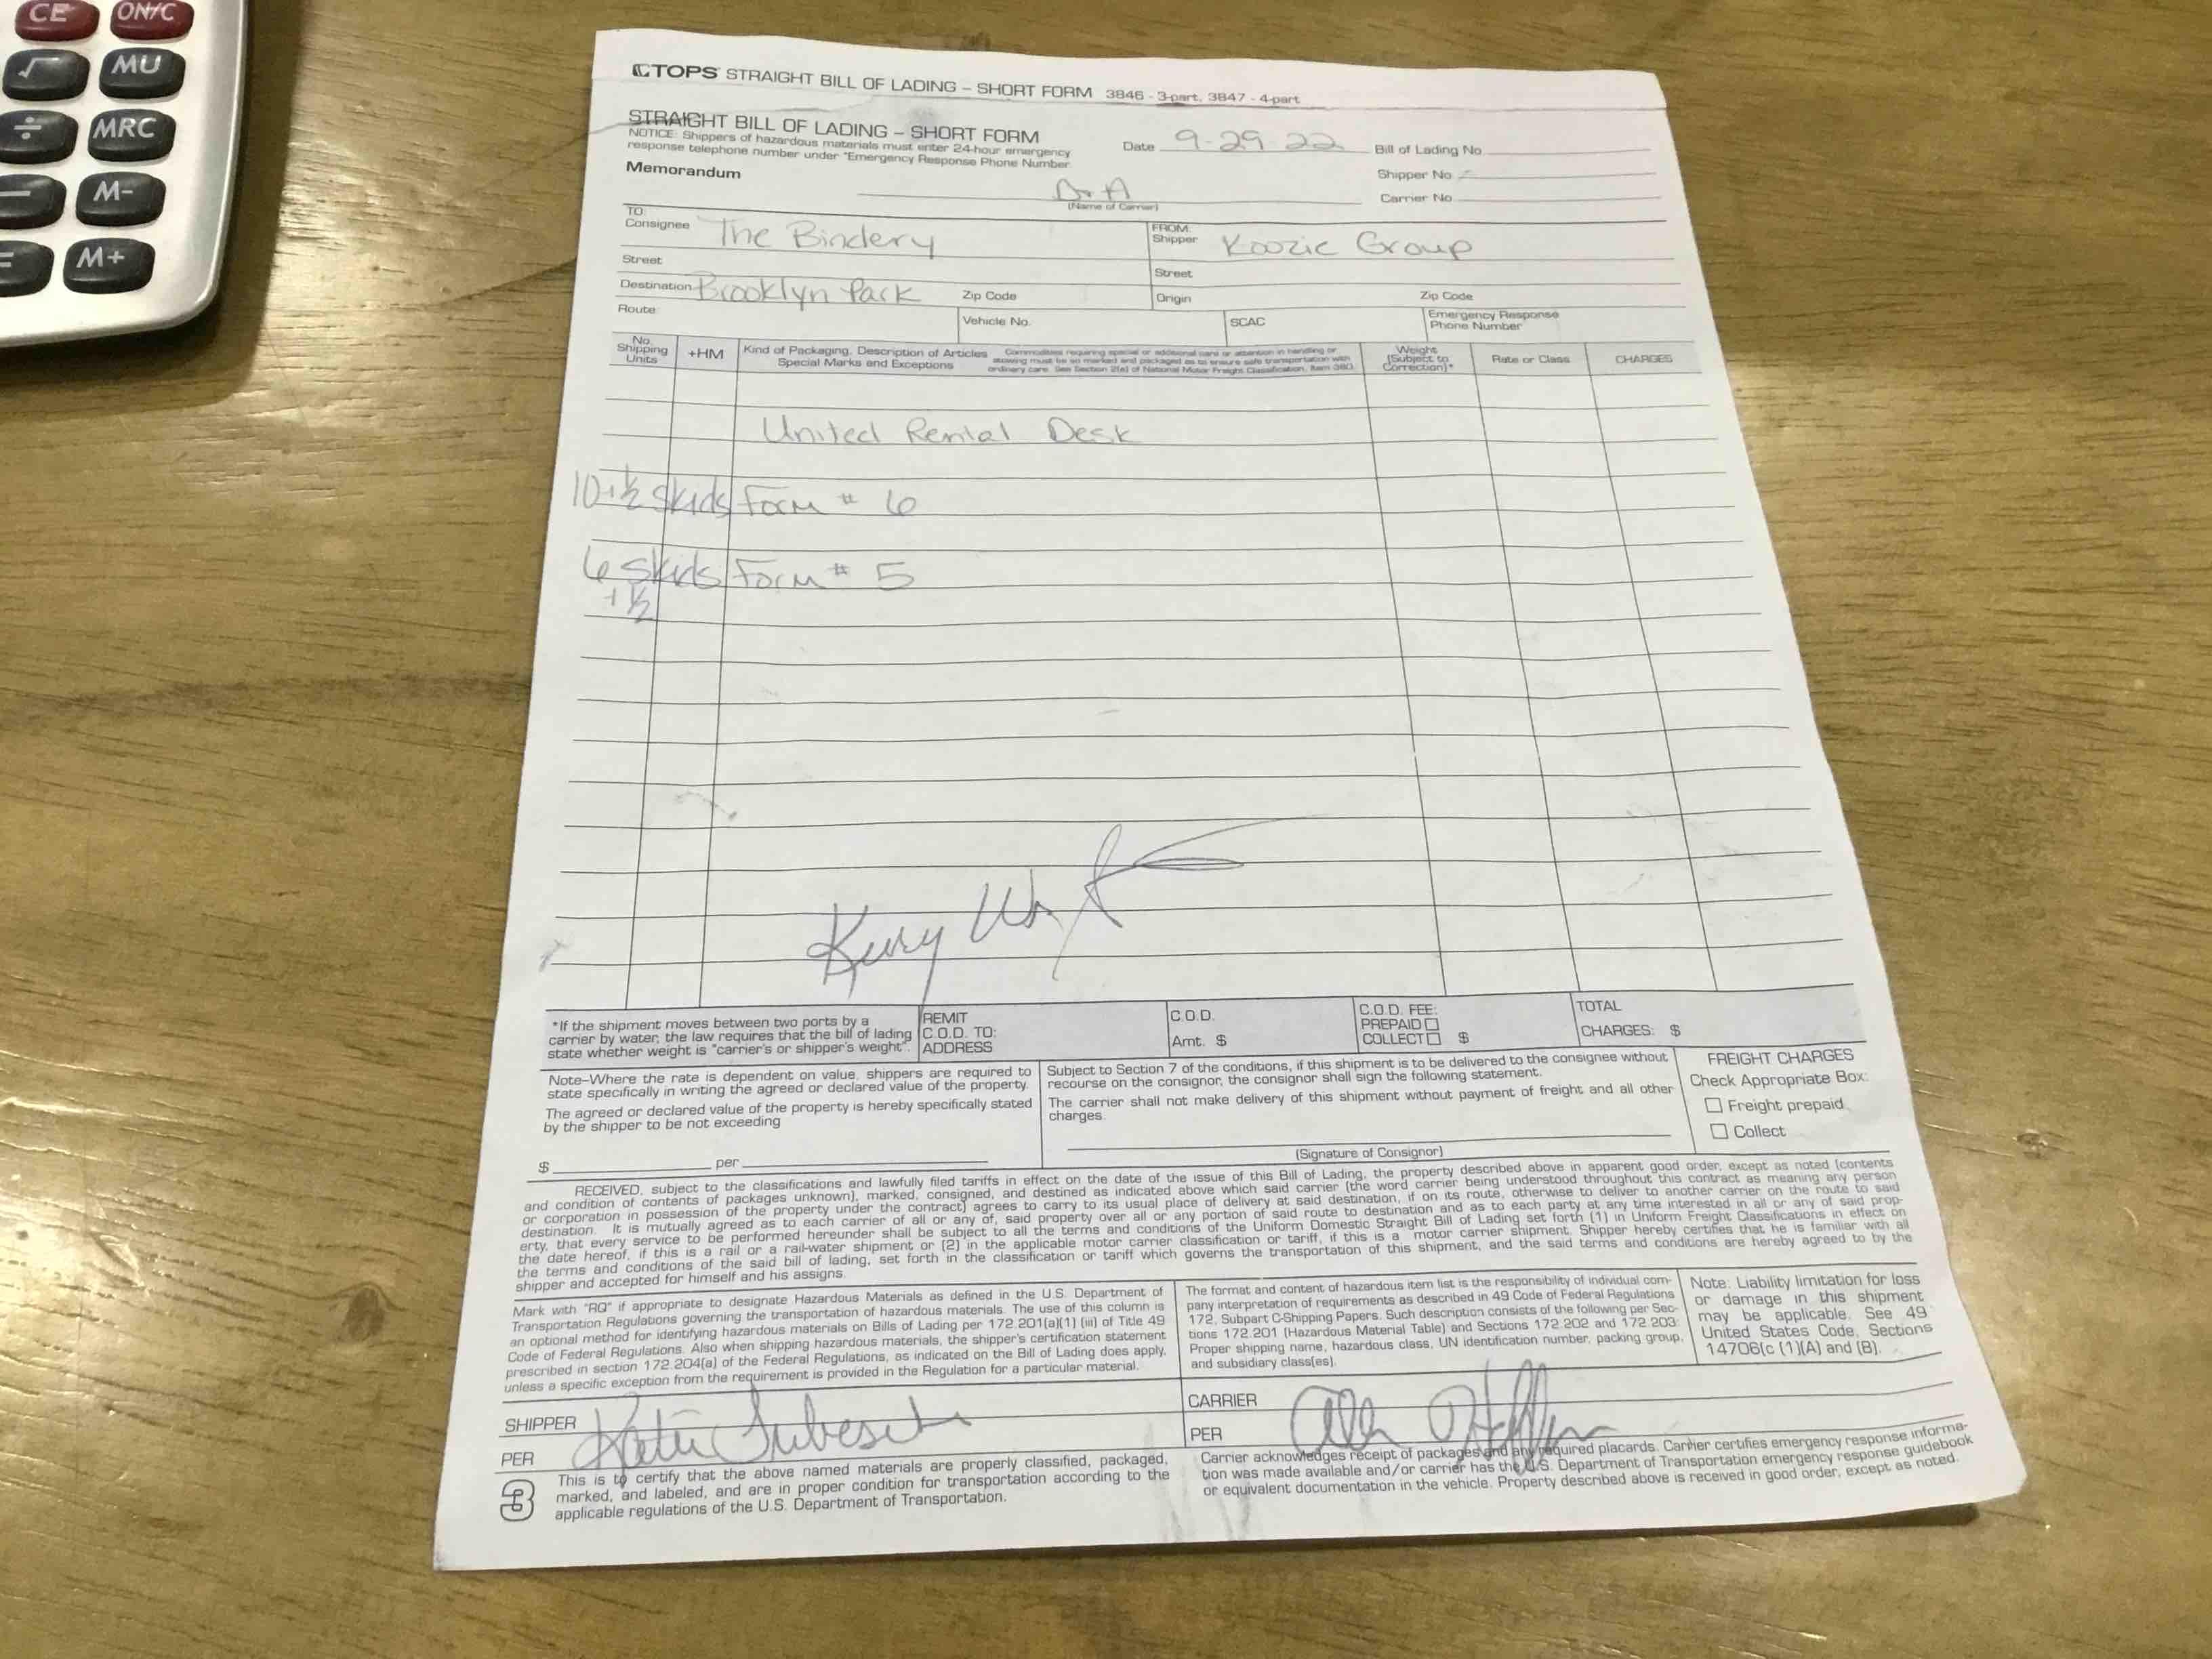 CE ON/C
√ MU
÷ MRC
− M-
= M+
TOPS STRAIGHT BILL OF LADING – SHORT FORM 3846 - 3-part, 3847 - 4-part
STRAIGHT BILL OF LADING – SHORT FORM
NOTICE: Shippers of hazardous materials must enter 24-hour emergency
response telephone number under "Emergency Response Phone Number.
Memorandum
Date 9-29-22
Bill of Lading No.
Shipper No.
Carrier No.
D+A
(Name of Carrier)
TO:
Consignee The Bindery
Street
Destination Brooklyn Park Zip Code
FROM:
Shipper Koozie Group
Street
Origin Zip Code
Route: Vehicle No. SCAC Emergency Response
Phone Number
No.
Shipping
Units
+HM
Kind of Packaging, Description of Articles
Special Marks and Exceptions
Commodities requiring special or additional care or attention in handling or
stowing must be so marked and packaged as to ensure safe transportation with
ordinary care. See Section 2(e) of National Motor Freight Classification, Item 360.
Weight
(Subject to
Correction)*
Rate or Class
CHARGES
United Rental Desk
10+½ Skids Form # 6
6 Skids Form # 5
+ ½
*If the shipment moves between two ports by a
carrier by water, the law requires that the bill of lading
state whether weight is "carrier's or shipper's weight".
REMIT
C.O.D. TO:
ADDRESS
C.O.D.
Amt. $
C.O.D. FEE:
PREPAID
COLLECT $
TOTAL
CHARGES: $
Note–Where the rate is dependent on value, shippers are required to
state specifically in writing the agreed or declared value of the property.
The agreed or declared value of the property is hereby specifically stated
by the shipper to be not exceeding
$ per
Subject to Section 7 of the conditions, if this shipment is to be delivered to the consignee without
recourse on the consignor, the consignor shall sign the following statement.
The carrier shall not make delivery of this shipment without payment of freight and all other
charges.
(Signature of Consignor)
FREIGHT CHARGES
Check Appropriate Box:
Freight prepaid
Collect
RECEIVED, subject to the classifications and lawfully filed tariffs in effect on the date of the issue of this Bill of Lading, the property described above in apparent good order, except as noted (contents
and condition of contents of packages unknown), marked, consigned, and destined as indicated above which said carrier (the word carrier being understood throughout this contract as meaning any person
or corporation in possession of the property under the contract) agrees to carry to its usual place of delivery at said destination, if on its route, otherwise to deliver to another carrier on the route to said
destination. It is mutually agreed as to each carrier of all or any of, said property over all or any portion of said route to destination and as to each party at any time interested in all or any of said prop-
erty, that every service to be performed hereunder shall be subject to all the terms and conditions of the Uniform Domestic Straight Bill of Lading set forth (1) in Uniform Freight Classifications in effect on
the date hereof, if this is a rail or a rail-water shipment or (2) in the applicable motor carrier classification or tariff, if this is a motor carrier shipment. Shipper hereby certifies that he is familiar with all
the terms and conditions of the said bill of lading, set forth in the classification or tariff which governs the transportation of this shipment, and the said terms and conditions are hereby agreed to by the
shipper and accepted for himself and his assigns.
Mark with "RQ" if appropriate to designate Hazardous Materials as defined in the U.S. Department of
Transportation Regulations governing the transportation of hazardous materials. The use of this column is
an optional method for identifying hazardous materials on Bills of Lading per 172.201(a)(1) (iii) of Title 49
Code of Federal Regulations. Also when shipping hazardous materials, the shipper's certification statement
prescribed in section 172.204(a) of the Federal Regulations, as indicated on the Bill of Lading does apply,
unless a specific exception from the requirement is provided in the Regulation for a particular material.
The format and content of hazardous item list is the responsibility of individual com-
pany interpretation of requirements as described in 49 Code of Federal Regulations
172, Subpart C-Shipping Papers. Such description consists of the following per Sec-
tions 172.201 (Hazardous Material Table) and Sections 172.202 and 172.203:
Proper shipping name, hazardous class, UN identification number, packing group,
and subsidiary class(es).
Note: Liability limitation for loss
or damage in this shipment
may be applicable. See 49
United States Code, Sections
14706(c (1)(A) and (B).
SHIPPER
PER Katie
CARRIER
PER
3
This is to certify that the above named materials are properly classified, packaged,
marked, and labeled, and are in proper condition for transportation according to the
applicable regulations of the U.S. Department of Transportation.
Carrier acknowledges receipt of packages and any required placards. Carrier certifies emergency response informa-
tion was made available and/or carrier has the U.S. Department of Transportation emergency response guidebook
or equivalent documentation in the vehicle. Property described above is received in good order, except as noted.